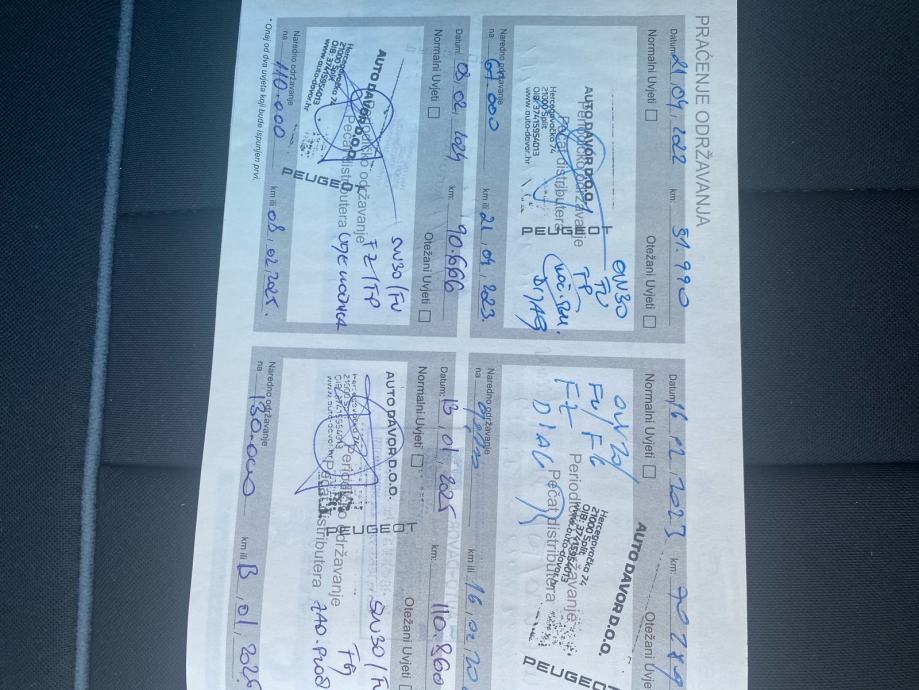 PRAĆENJE ODRŽAVANJA
Datum: 21, 04, 2022 km: 51.990
Normalni Uvjeti Otežani Uvjeti
AUTO DAVOR D.O.O.
Hercegovačka 74
21000 Split
OIB: 37415954013
www.auto-davor.hr
Periodičko održavanje
Pečat distributera
PEUGEOT
FU
FP
Naredno održavanje
na 67.000 km ili 21, 04, 2023.
Datum: 16, 02, 2023 km:
Normalni Uvjeti Otežani Uvje
AUTO DAVOR D.O.O.
Hercegovačka 74
21000 Split
OIB: 37415954013
www.auto-davor
Periodičko održavanje
Pečat distributera
PEUGEOT
FU/FG
FZ
DIAG
Naredno održavanje
na km ili 16, 02, 20
Datum: 08, 02, 2024 km: 90.666
Normalni Uvjeti Otežani Uvjeti
AUTO DAVOR D.O.O.
Hercegovačka 74
21000 Split
OIB: 37415954013
www.auto-davor.hr
Periodičko održavanje
Pečat distributera
PEUGEOT
5W30/FU
FZ/FP
Naredno održavanje
na 110.000 km ili 08, 02, 2025.
* Onaj od dva uvjeta koji bude ispunjen prvi.
Datum: 13, 01, 2025 km: 110.860
Normalni Uvjeti Otežani Uvjeti
AUTO DAVOR D.O.O.
Hercegovačka 74
21000 Split
OIB: 37415954013
www.auto-davor.hr
Periodičko održavanje
Pečat distributera
PEUGEOT
5W30/FU
FG
Naredno održavanje
na 130.000 km ili 13, 01, 2026